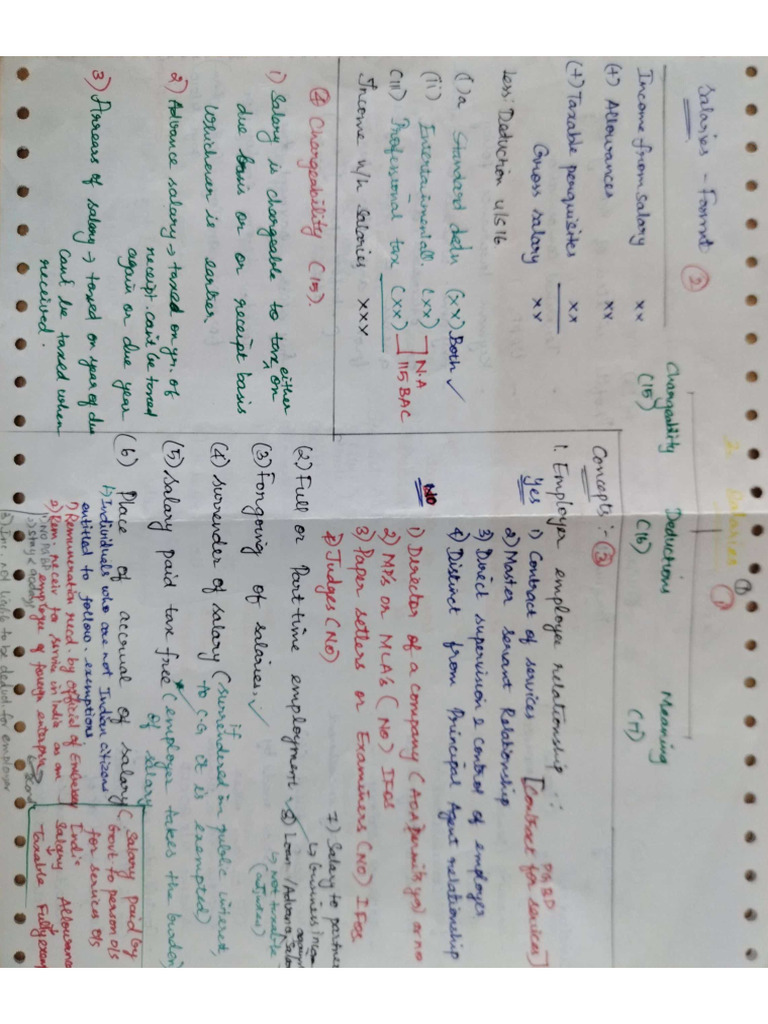 2. Salaries ①
Chargeability (15)
Deductions (16)
Meaning (17)
Salaries - Format ②
Income from salary xx
(+) Allowances xx
(+) Taxable perquisites xx
Gross salary xx
Less: Deduction u/s 16
(i)a Standard dedn (xx) Both ✓
(ii) Entertainmentall. (xx) N.A
(iii) Professional tax (xx) 115 BAC
Income u/h Salaries xxx
④ Chargeability (15).
1) Salary is chargeable to tax either on
due basis or receipt basis
whichever is earlier
2) Advance salary → taxed on yr. of
receipt. can't be taxed
again on due year
3) Arrears of salary → taxed on year of due
can't be taxed when
received.
Concepts :- ③
1. Employer employee relationship :-
Yes 1) Contract of services [Contract for services]
2) Master servant Relationship
3) Direct supervision & control of employer
4) Distinct from Principal Agent relationship
No 1) Director of a company (AOA permits yes) or no
2) MP's or MLA's (No) IFOS
3) Paper setters or Examiners (No) IFOS
4) Judges (No)
(2) Full or Part-time employment
(3) Forgoing of salaries. ✓
(4) surrender of salary (if surrendered in public interest,
to C.G it is exempted)
(5) Salary paid tax free (employer takes the burden)
of salary
(6) Place of accrual of salary (Salary paid by
Govt to person o/s
for services o/s
India
Salary Allowance
Taxable Fully exem
1) Individuals who are not Indian citizens
entitled to follow. exemptions
1) Remuneration recd by official of Embassy
2) Rem receiv to service in India as an
employee of foreign enterprise
7) Salary to partner
↳ business Income
8) Loan/Advance Salary
↳ not taxable